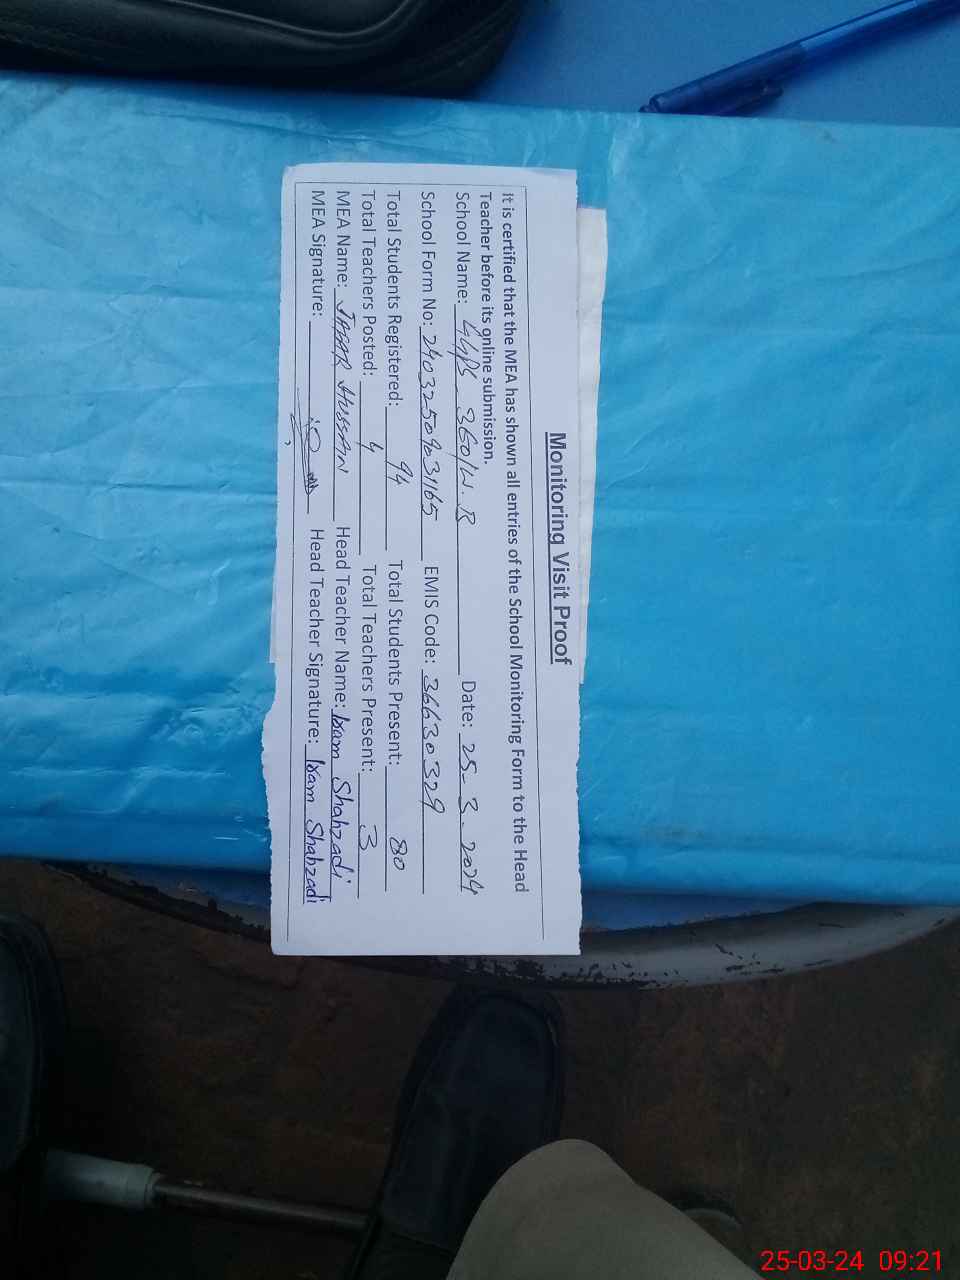 Monitoring Visit Proof
It is certified that the MEA has shown all entries of the School Monitoring Form to the Head
Teacher before its online submission.
School Name: GGPS 360/W.B Date: 25-3-2024
School Form No: 24032509031165 EMIS Code: 36630329
Total Students Registered: 94 Total Students Present: 80
Total Teachers Posted: 4 Total Teachers Present: 3
MEA Name: JABAR HUSSAIN Head Teacher Name: Iram Shahzadi
MEA Signature: Head Teacher Signature: Iram Shahzadi
25-03-24 09:21